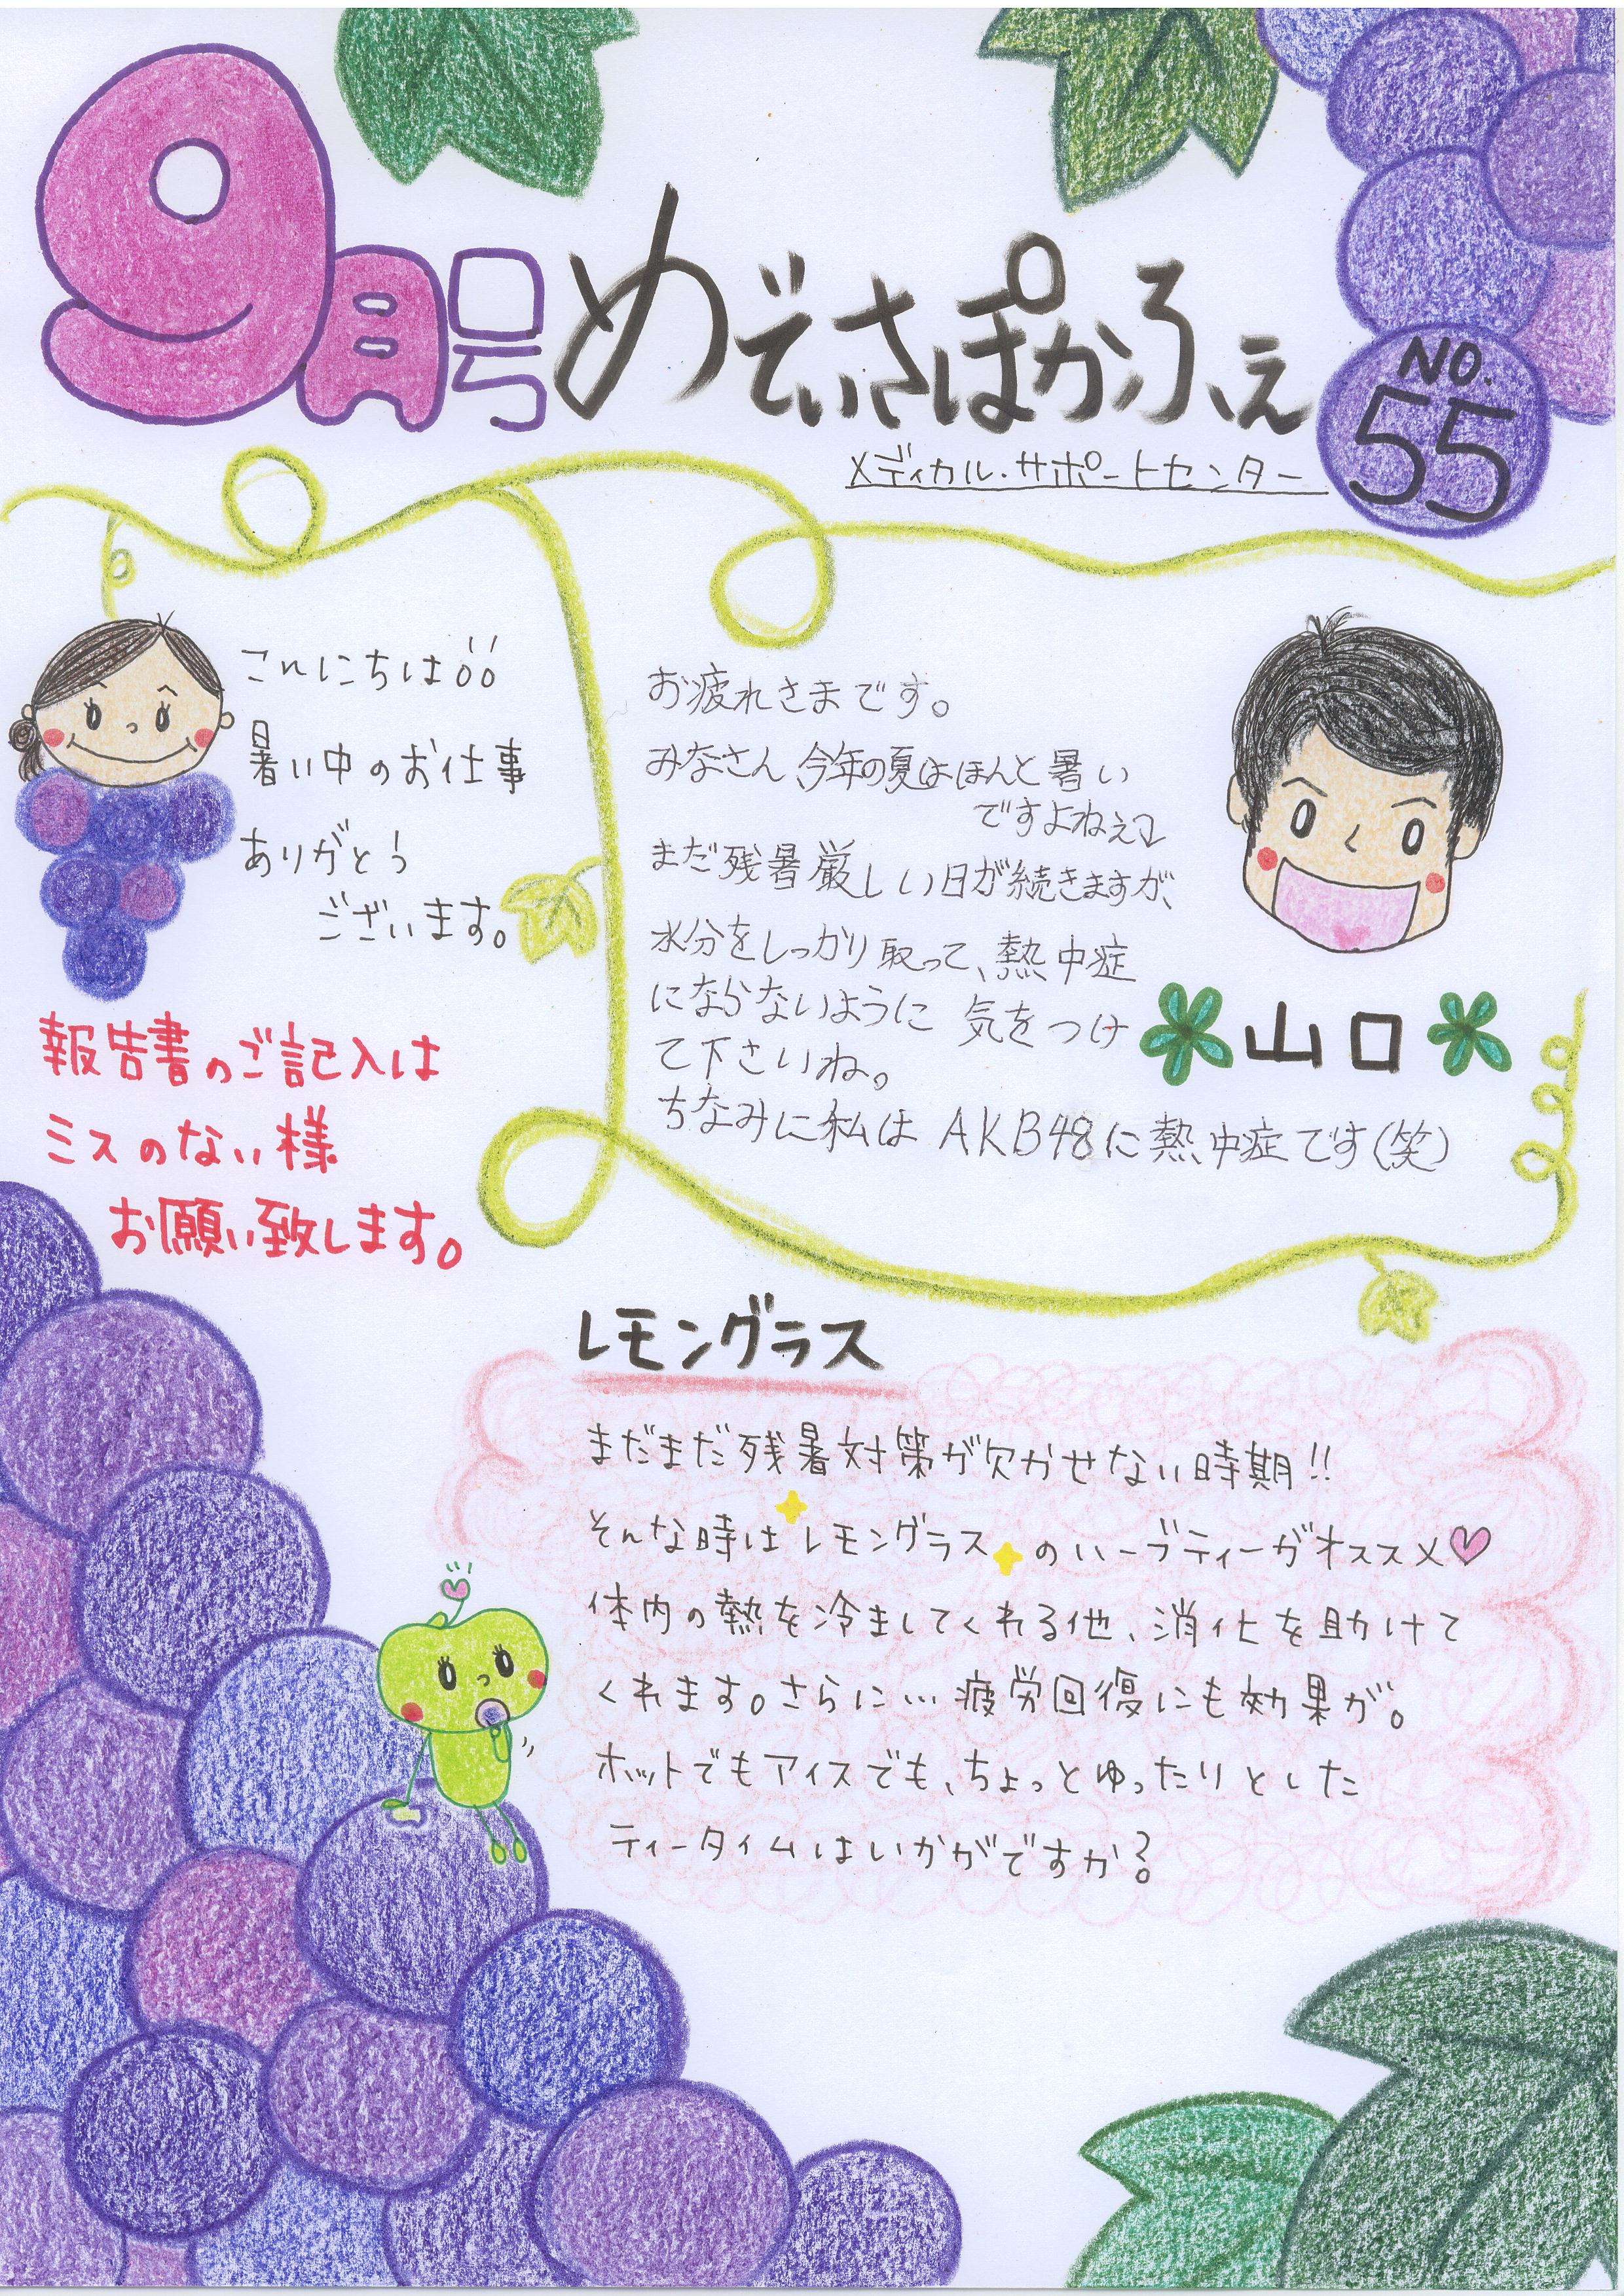 9月号
めでぃさぽかふぇ
NO.
55
メディカル・サポートセンター
こんにちは!!
暑い中のお仕事
ありがとう
ございます。
報告書のご記入は
ミスのない様
お願い致します。
お疲れさまです。
みなさん 今年の夏はほんと暑い
ですよねぇ
まだ残暑厳しい日が続きますが、
水分をしっかり取って、熱中症
にならないように 気をつけ
て下さいね。
ちなみに私は AKB48に熱中症です(笑)
山口
レモングラス
まだまだ残暑対策が欠かせない時期!!
そんな時はレモングラスのハーブティーがオススメ♡
体内の熱を冷ましてくれる他、消化を助けて
くれます。さらに… 疲労回復にも効果が。
ホットでもアイスでも、ちょっとゆったりとした
ティータイムはいかがですか?